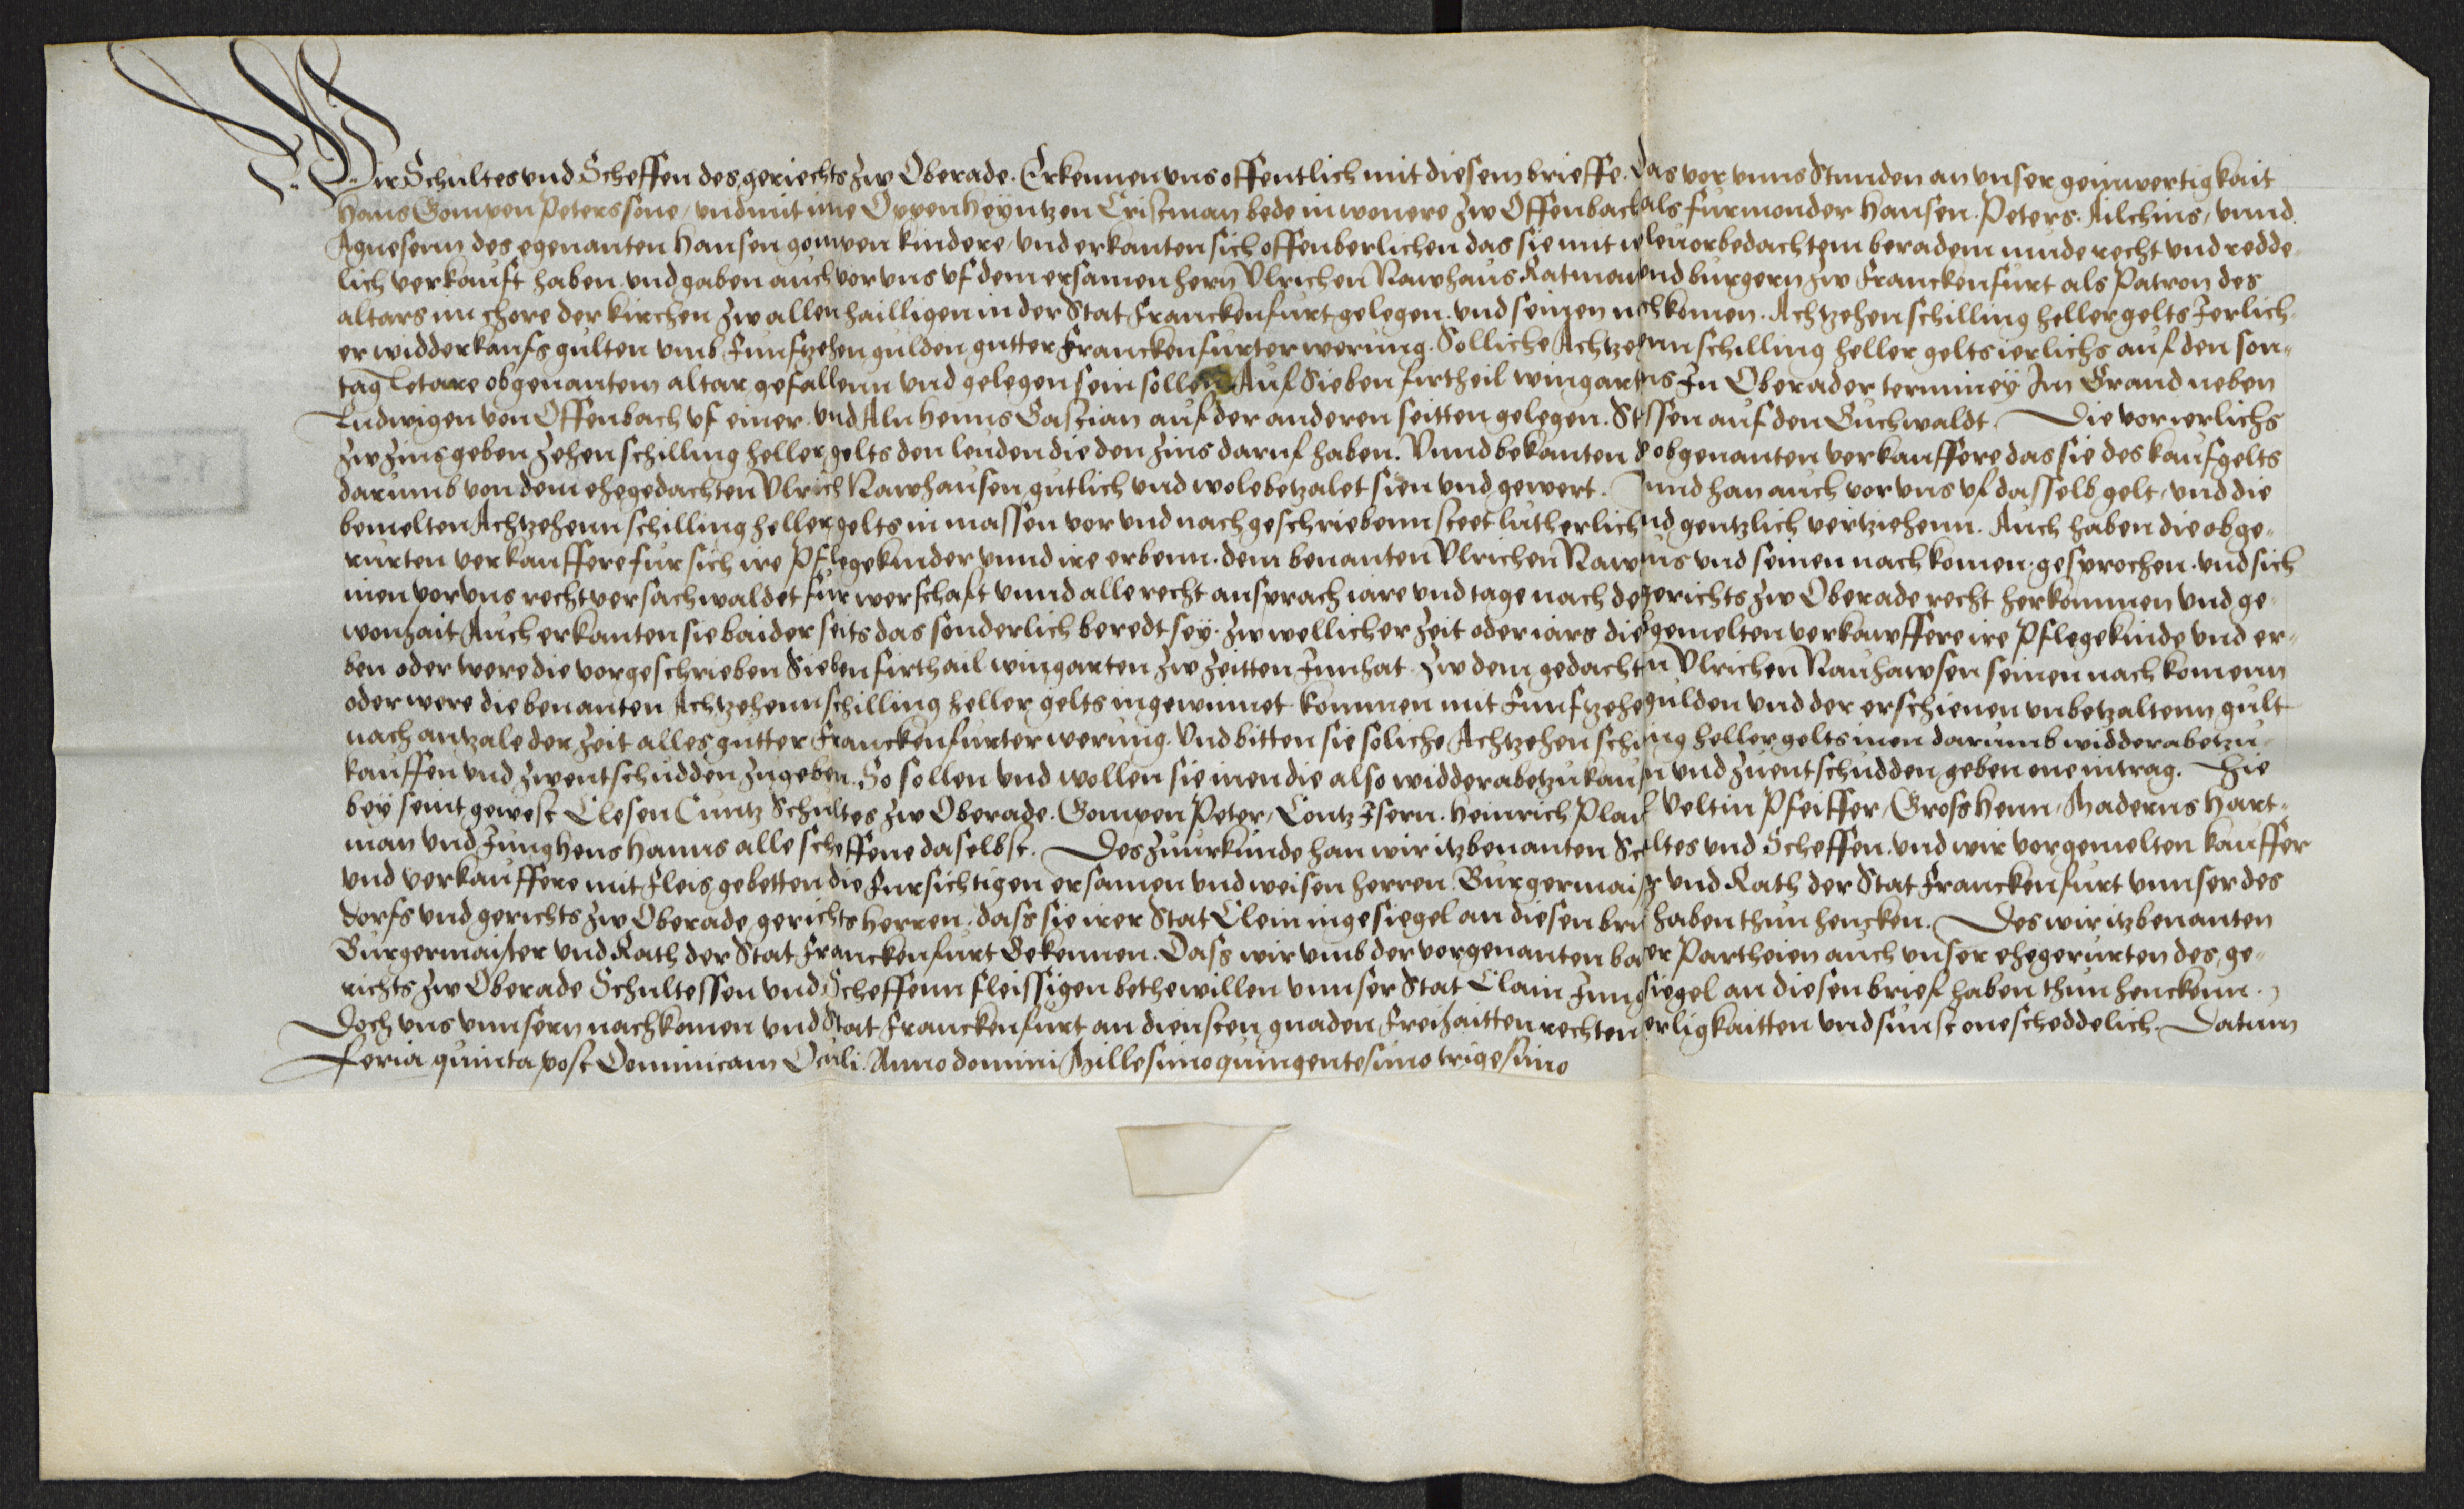 Wir Schultes vnd Scheffen des geriechts zw Oberade. Erkennen vns offentlich mit diesem brieffe. das vor vnns Stunden an vnser geinwertigkait
Hans Gompen Peters sone, vnd mit ime Oppenheyntzen Cristman bede inwonere zw Offenbach als furmonder Hansen. Peters. Ailchins, vnnd
Agnesenn des egenanten Hansen gompen kindere, vnd erkanten sich offenberlichen das sie mit vorbedachtem beradem mude recht vnd redde-
lich verkauft haben. vnd gaben auch vor vns vf dem ersamen hern Vlrichen Nawhaus Ratman vnd burgern zw Franckenfurt als Patron des
altars im chore der kirchen zw allen hailligen in der Stat Franckenfurt gelegen. vnd seinen nachkomen. Achtzehen schilling heller gelts Jerlich-
er widderkaufs gulten vmb Funftzehen gulden gutter Franckenfurter werung. Solliche Achtzehenn schilling heller gelts ierlichs auf den son-
tag Letare obgenantem altar gefallenn vnd gelegen sein sollen. Auf Sieben firtheil wingartens In Oberader terminey Im Grand neben
Ludwigen von Offenbach vf einer. vnd Aln henns Bastian auf der anderen seitten gelegen. Stossen auf den Buchwaldt. Die vor ierlichs
zw zins geben zehen schilling heller gelts den leuden die den zins daruf haben. Vnnd bekanten die obgenanten verkauffere das sie des kaufgelts
darumb von dem ehegedachten Vlrich Nawhausen gutlich vnd wole betzalet sien vnd gewert. Vnnd han auch vor vns vf dasselb gelt, vnd die
bemelten Achtzehenn schilling heller gelts in massen vor vnd nach geschriebenn steet lutherlich vnd gentzlich vertziehenn. Auch haben die obge-
rurten verkauffere fur sich ire Pflegekinder vnnd ire erbenn. dem benanten Vlrichen Nawhaus vnd seinen nachkomen. gesprochen. vnd sich
inen vor vns recht versachwaldet fur werschaft vnnd alle recht ansprach iare vnd tage nach des gerichts zw Oberade recht herkommen vnd ge-
wonhait Auch erkanten sie baider seits das sonderlich beredt sey. zw wellicher zeit oder iars die gemelten verkawffere ire Pflegekinde vnd er-
ben oder were die vorgeschrieben Sieben firthail wingarten zw zeitten Jnnhat. Zw dem gedachten Vlrichen Nauhawsen seinen nachkomenn
oder were die benanten Achtzehenn schilling heller gelts ingewinnet kommen mit Funftzehen gulden vnd der erschienen vnbetzaltenn gult
nach antzale der zeit alles gutter Franckenfurter werung. Vnd bitten sie soliche Achtzehen schilling heller gelts inen darumb widder abetzu-
kauffen vnd zw entschudden zugeben. So sollen vnd wollen sie inen die also widder abetzukauffen vnd zuentschudden geben one intrag. Hie
bey seint gewest Clesen Cuntz Schultes zw Oberade. Gompen Peter, Contz Isern. Heinrich Veltin Pfeiffer, Gross Henn, Maderns Hart-
man vnd Junghens Hanns alle scheffene daselbst. Des zuurkunde han wir itzbenanten Schultes vnd Scheffen. vnd wir vorgemelten kauffer
vnd verkauffere mit fleis gebetten die fursichtigen ersamen vnd weisen herren. Burgermaister vnd Rath der Stat Franckenfurt vnnser des
dorfs vnd gerichts zw Oberade gerichts herren. dass sie irer Stat Clein ingesiegel an diesen brief haben thun hencken. Des wir itzbenanten
Burgermaister vnd Rath der Stat Franckenfurt Bekennen. Dass wir vmb der vorgenanten baider Partheien auch vnser ehegerurten des ge-
richts zw Oberade Schultessen vnd Scheffenn fleissigen bethe willen vnnser Stat Clain Jnngesiegel an diesen brief haben thun henckenn.
Doch vns vnnsern nachkomen vnd Stat Franckenfurt an diensten gnaden Freihaitten rechten herligkaitten vnd sunst onescheddelich. Datum
Feria quinta post Dominicam Oculi. Anno domini Millesimo quingentesimo trigesimo